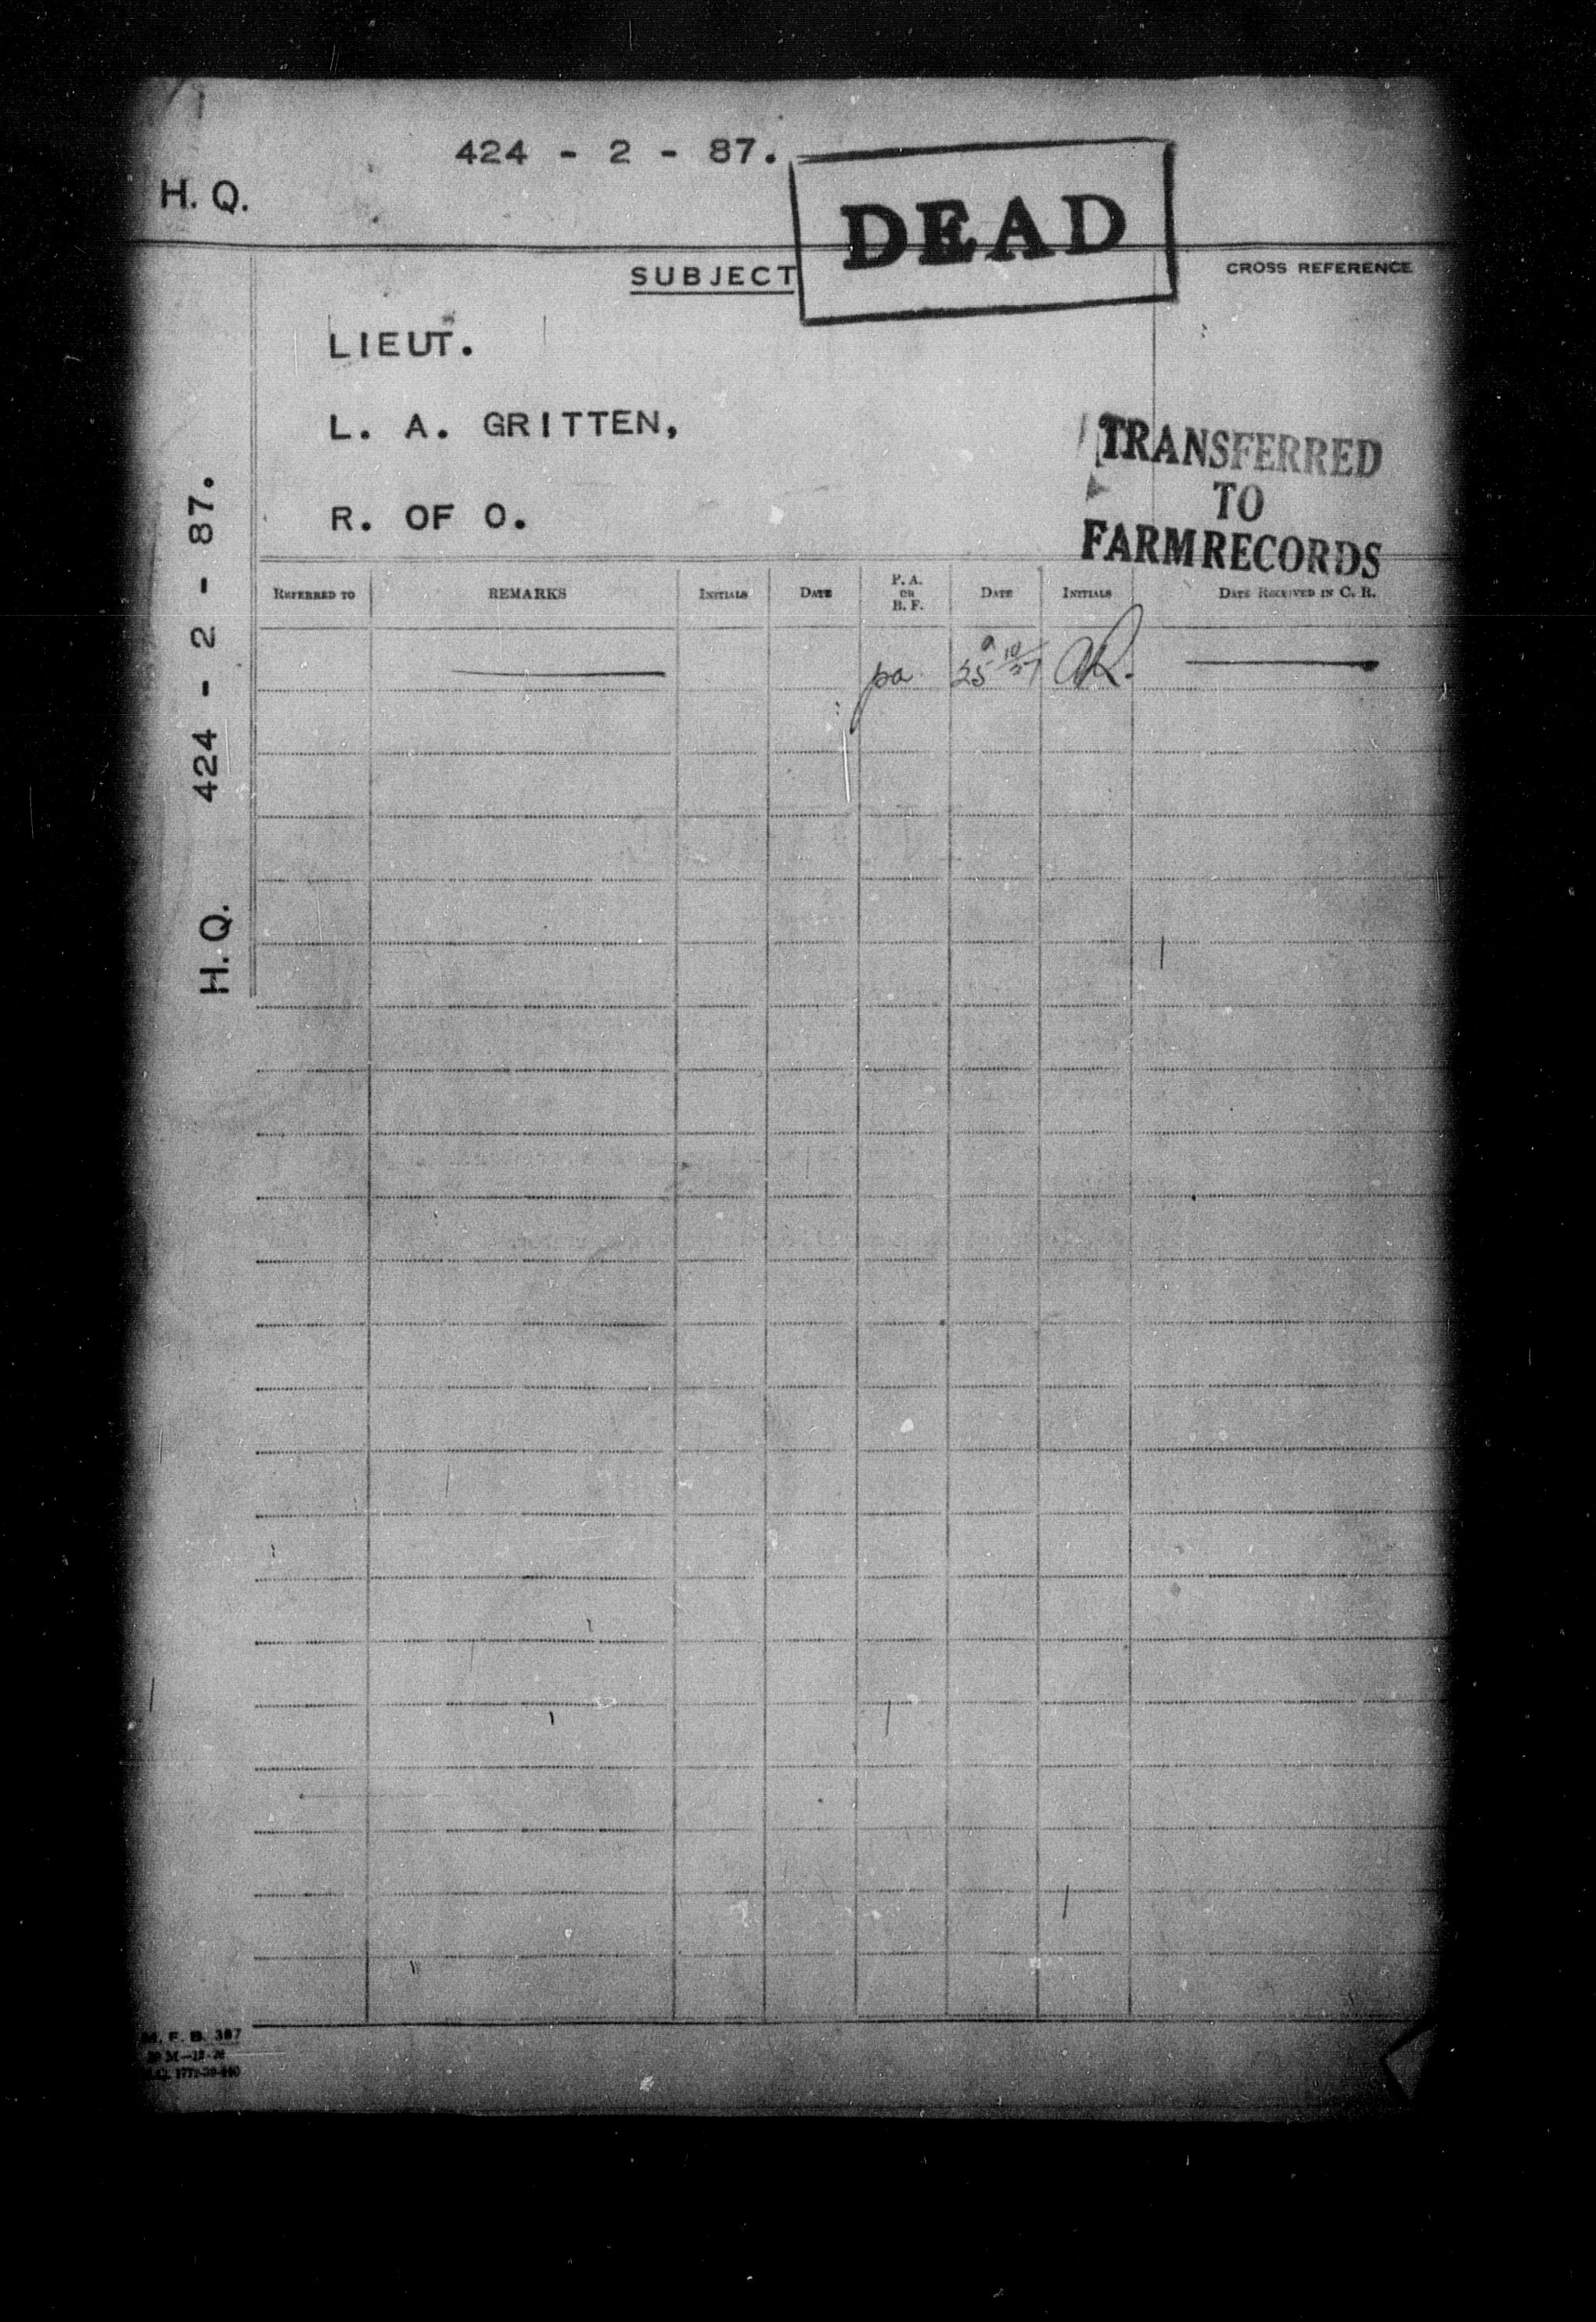 424 - 2 - 87.
H. Q.
DEAD
SUBJECT
CROSS REFERENCE
LIEUT.
L. A. GRITTEN,
R. OF O.
TRANSFERRED
TO
FARM RECORDS
H. Q. 424 - 2 - 87.
REFERRED TO REMARKS INITIALS DATE P. A. OR B. F. DATE INITIALS DATE RECEIVED IN C. R.
pa 25 10/27 AR.
F. B. 387